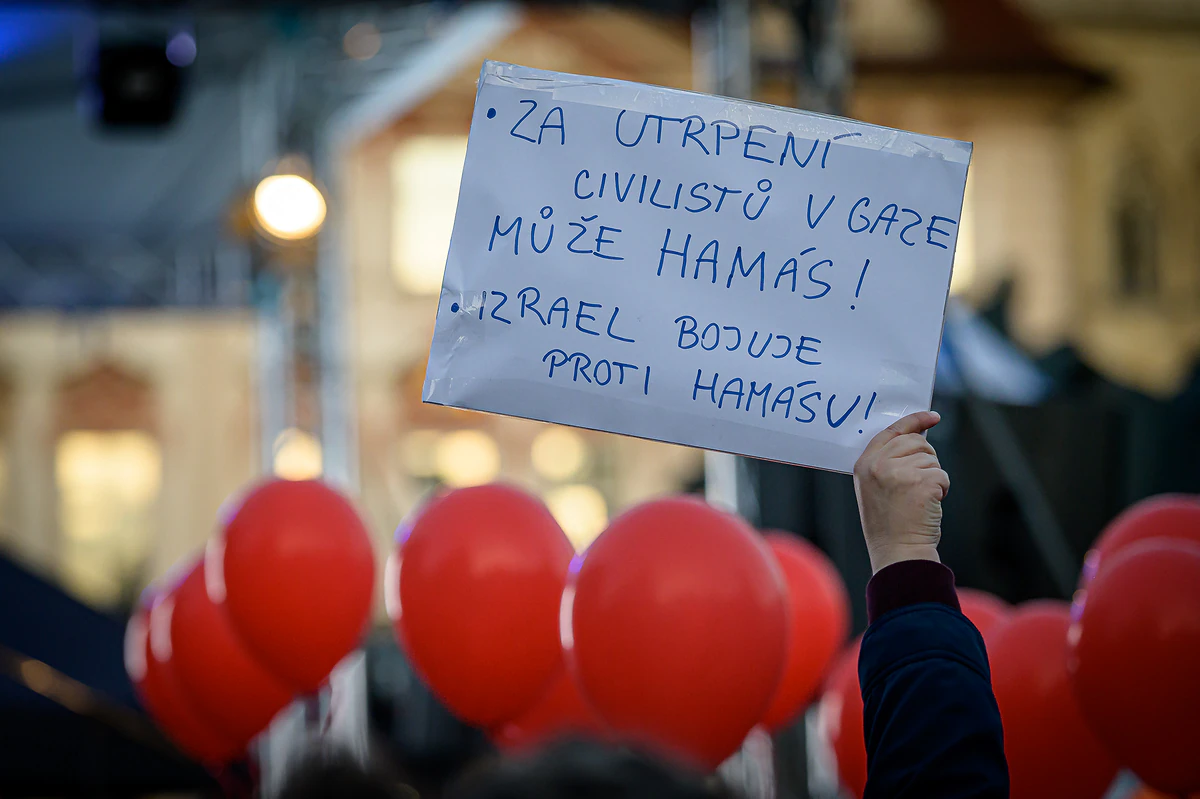 • ZA UTRPENÍ
CIVILISTŮ V GAZE
MŮŽE HAMÁS!
• IZRAEL BOJUJE
PROTI HAMÁSU!